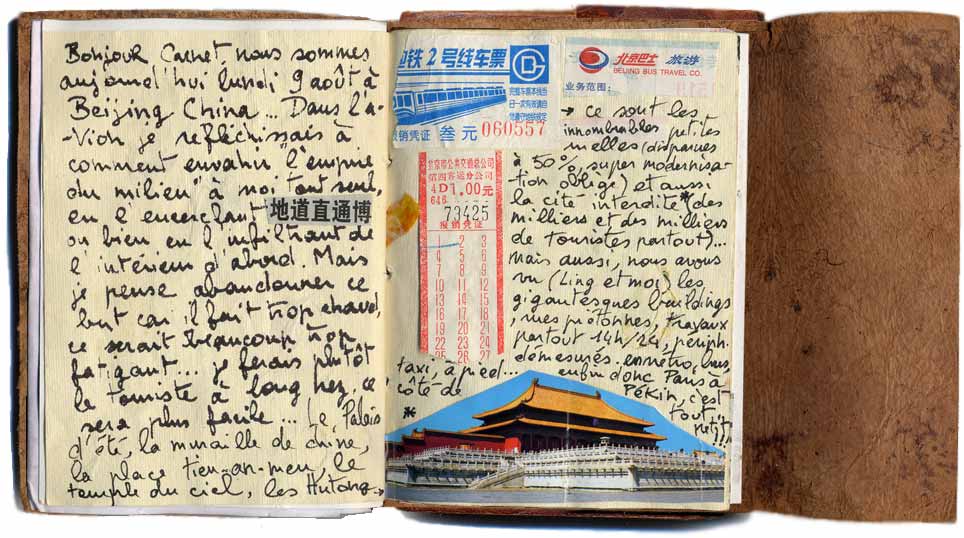 Bonjour Carnet nous sommes
aujourd'hui lundi 9 août à
Beijing China... Dans l'a-
-vion je refléchissais à
comment envahir "l'empire
du milieu" à moi tout seul,
en l'encerclant
地道直通博
ou bien en l'infiltrant de
l'intérieur d'abord. Mais
je pense abandonner ce
but car il fait trop chaud,
ce serait beaucoup trop
fatigant... je ferais plutôt
le touriste à long nez, ce
sera plus facile... Le Palais
d'été, la muraille de chine,
la place tien-an-men, le
temple du ciel, les Hutong→
铁2号线车票
报销凭证 叁元 060557
北京巴士 旅游
BEIJING BUS TRAVEL CO.
业务范围:
北京市公共交通总公司
第四客运分公司
4D1.00元
646
73425
报销凭证
1 2 3
4 5 6
7 8 9
10 11 12
13 14 15
16 17 18
19 20 21
22 23 24
25 26 27
→ ce sont les
innombrables petites
ruelles (disparues
à 50% super modernisa-
tion oblige) et aussi
la cité interdite* (des
milliers et des milliers
de touristes partout)...
mais aussi, nous avons
vu (Ling et moi) les
gigantesques buildings
, rues piétonnes, travaux
partout 24h/24, périph.
démesurés. en métro, bus,
taxi, à pied... enfin donc Paris à
côté de Pékin, c'est
tout
petit!!!